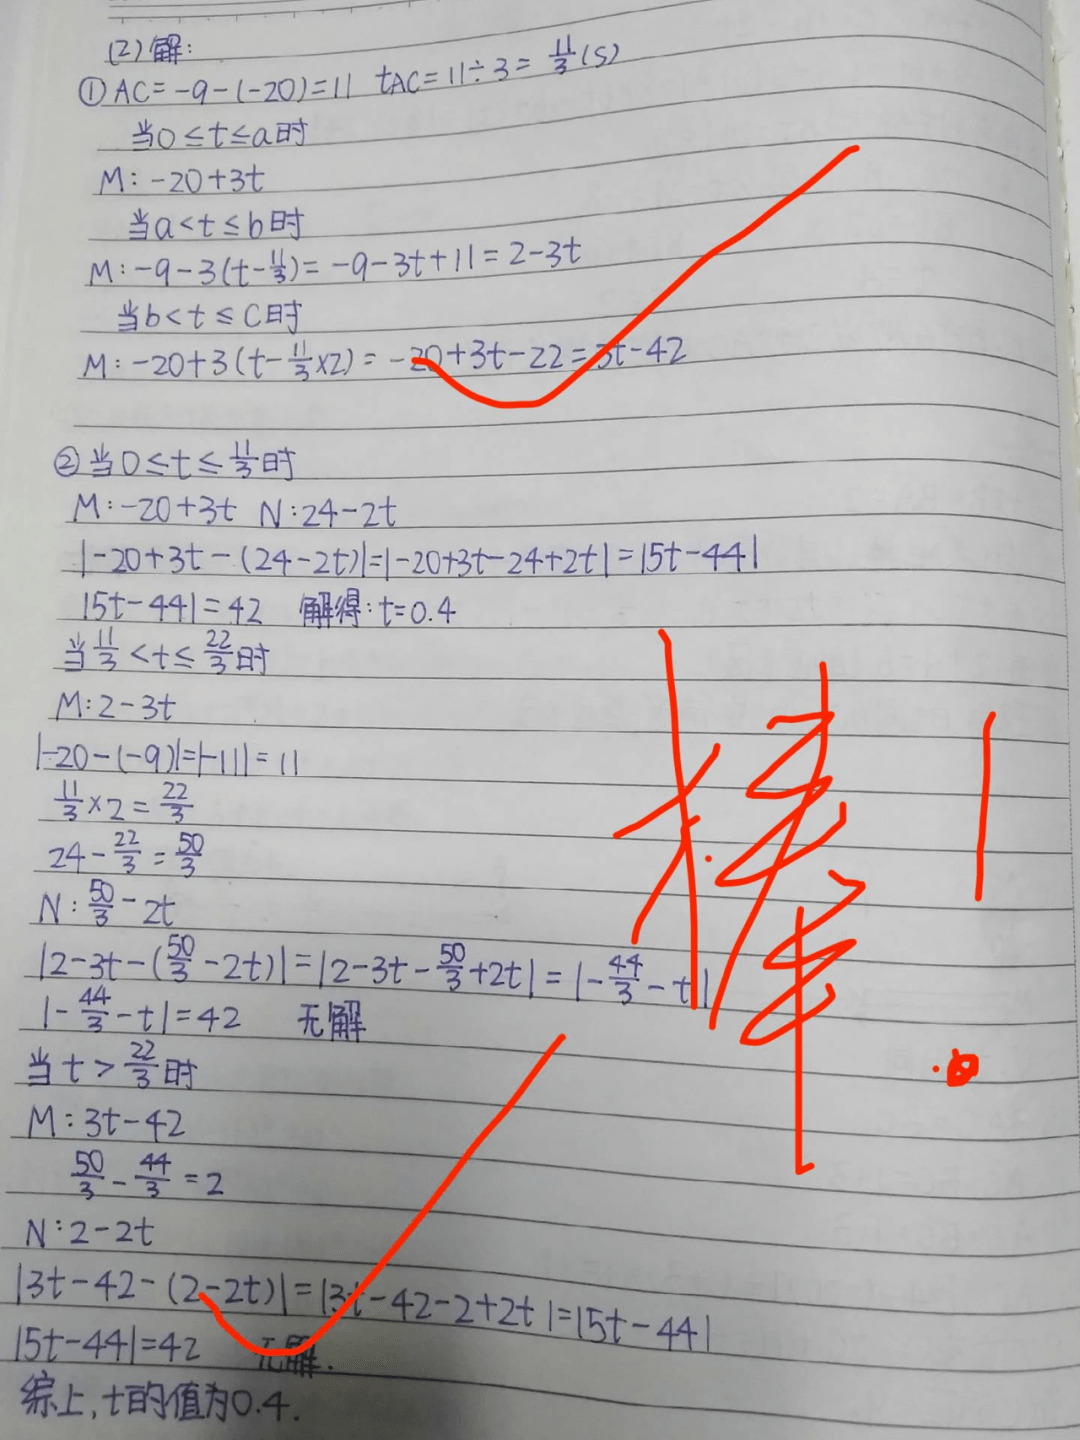 (2)解:
①AC=-9-(-20)=11 tAC=11÷3=11/3(s)
当0≤t≤a时
M:-20+3t
当a<t≤b时
M:-9-3(t-11/3)=-9-3t+11=2-3t
当b<t≤c时
M:-20+3(t-11/3×2)=-20+3t-22=3t-42
②当0≤t≤11/3时
M:-20+3t N:24-2t
|-20+3t-(24-2t)|=|-20+3t-24+2t|=|5t-44|
|5t-44|=42 解得:t=0.4
当11/3<t≤22/3时
M:2-3t
|-20-(-9)|=|-11|=11
11/3×2=22/3
24-22/3=50/3
N:50/3-2t
|2-3t-(50/3-2t)|=|2-3t-50/3+2t|=|-44/3-t|
|-44/3-t|=42 无解
当t>22/3时
M:3t-42
50/3-44/3=2
N:2-2t
|3t-42-(2-2t)|=|3t-42-2+2t|=|5t-44|
|5t-44|=42 无解.
综上,t的值为0.4.
棒!